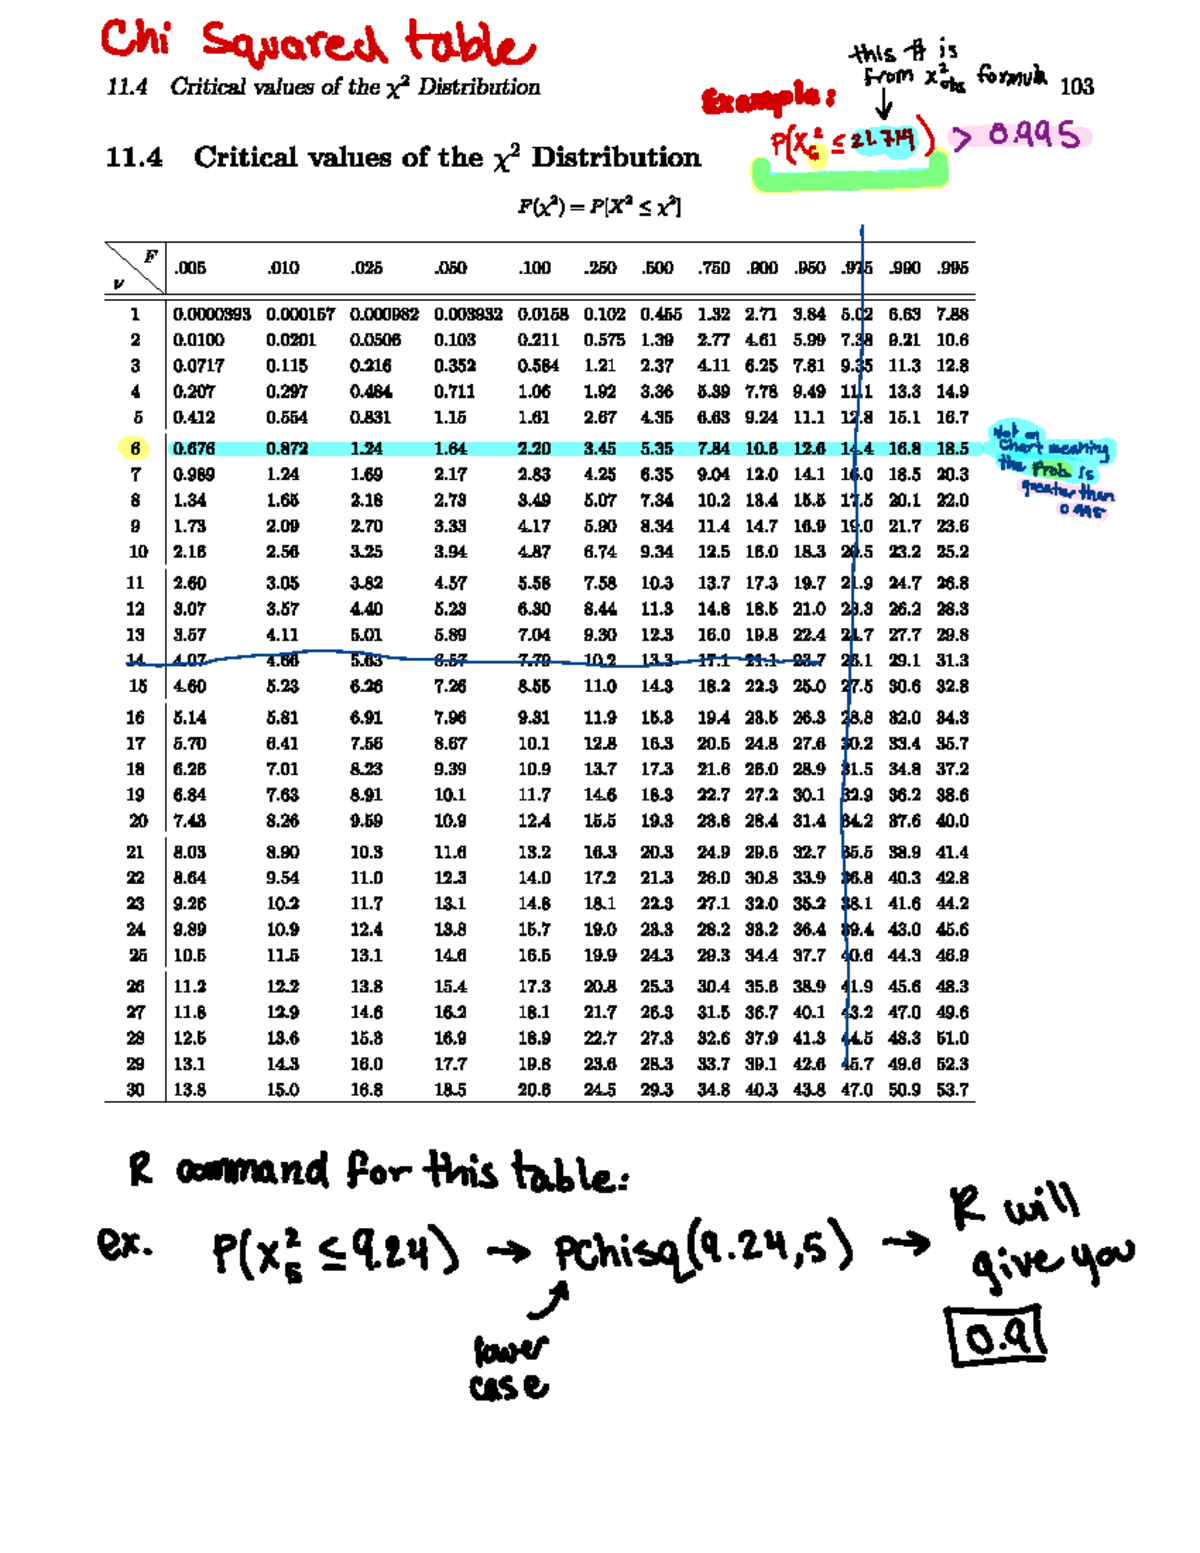 Chi Squared table
11.4 Critical values of the χ² Distribution 103
this # is
from x²obs formula
Example:
P(X²6 ≤ 21.719) > 0.995
11.4 Critical values of the χ² Distribution
F(χ²) = P[X² ≤ χ²]
F
ν .005 .010 .025 .050 .100 .250 .500 .750 .900 .950 .975 .990 .995
1 0.0000393 0.000157 0.000982 0.003932 0.0158 0.102 0.455 1.32 2.71 3.84 5.02 6.63 7.88
2 0.0100 0.0201 0.0506 0.103 0.211 0.575 1.39 2.77 4.61 5.99 7.38 9.21 10.6
3 0.0717 0.115 0.216 0.352 0.584 1.21 2.37 4.11 6.25 7.81 9.35 11.3 12.8
4 0.207 0.297 0.484 0.711 1.06 1.92 3.36 5.39 7.78 9.49 11.1 13.3 14.9
5 0.412 0.554 0.831 1.15 1.61 2.67 4.35 6.63 9.24 11.1 12.8 15.1 16.7
6 0.676 0.872 1.24 1.64 2.20 3.45 5.35 7.84 10.6 12.6 14.4 16.8 18.5
Not on
Chart meaning
the Prob is
greater than
0.995
7 0.989 1.24 1.69 2.17 2.83 4.25 6.35 9.04 12.0 14.1 16.0 18.5 20.3
8 1.34 1.65 2.18 2.73 3.49 5.07 7.34 10.2 13.4 15.5 17.5 20.1 22.0
9 1.73 2.09 2.70 3.33 4.17 5.90 8.34 11.4 14.7 16.9 19.0 21.7 23.6
10 2.16 2.56 3.25 3.94 4.87 6.74 9.34 12.5 16.0 18.3 20.5 23.2 25.2
11 2.60 3.05 3.82 4.57 5.58 7.58 10.3 13.7 17.3 19.7 21.9 24.7 26.8
12 3.07 3.57 4.40 5.23 6.30 8.44 11.3 14.8 18.5 21.0 23.3 26.2 28.3
13 3.57 4.11 5.01 5.89 7.04 9.30 12.3 16.0 19.8 22.4 24.7 27.7 29.8
14 4.07 4.66 5.63 6.57 7.79 10.2 13.3 17.1 21.1 23.7 26.1 29.1 31.3
15 4.60 5.23 6.26 7.26 8.55 11.0 14.3 18.2 22.3 25.0 27.5 30.6 32.8
16 5.14 5.81 6.91 7.96 9.31 11.9 15.3 19.4 23.5 26.3 28.8 32.0 34.3
17 5.70 6.41 7.56 8.67 10.1 12.8 16.3 20.5 24.8 27.6 30.2 33.4 35.7
18 6.26 7.01 8.23 9.39 10.9 13.7 17.3 21.6 26.0 28.9 31.5 34.8 37.2
19 6.84 7.63 8.91 10.1 11.7 14.6 18.3 22.7 27.2 30.1 32.9 36.2 38.6
20 7.43 8.26 9.59 10.9 12.4 15.5 19.3 23.8 28.4 31.4 34.2 37.6 40.0
21 8.03 8.90 10.3 11.6 13.2 16.3 20.3 24.9 29.6 32.7 35.5 38.9 41.4
22 8.64 9.54 11.0 12.3 14.0 17.2 21.3 26.0 30.8 33.9 36.8 40.3 42.8
23 9.26 10.2 11.7 13.1 14.8 18.1 22.3 27.1 32.0 35.2 38.1 41.6 44.2
24 9.89 10.9 12.4 13.8 15.7 19.0 23.3 28.2 33.2 36.4 39.4 43.0 45.6
25 10.5 11.5 13.1 14.6 16.5 19.9 24.3 29.3 34.4 37.7 40.6 44.3 46.9
26 11.2 12.2 13.8 15.4 17.3 20.8 25.3 30.4 35.6 38.9 41.9 45.6 48.3
27 11.8 12.9 14.6 16.2 18.1 21.7 26.3 31.5 36.7 40.1 43.2 47.0 49.6
28 12.5 13.6 15.3 16.9 18.9 22.7 27.3 32.6 37.9 41.3 44.5 48.3 51.0
29 13.1 14.3 16.0 17.7 19.8 23.6 28.3 33.7 39.1 42.6 45.7 49.6 52.3
30 13.8 15.0 16.8 18.5 20.6 24.5 29.3 34.8 40.3 43.8 47.0 50.9 53.7
R command for this table:
ex. P(x²5 ≤ 9.24) → Pchisq(9.24,5) → R will
give you
0.9
lower
case